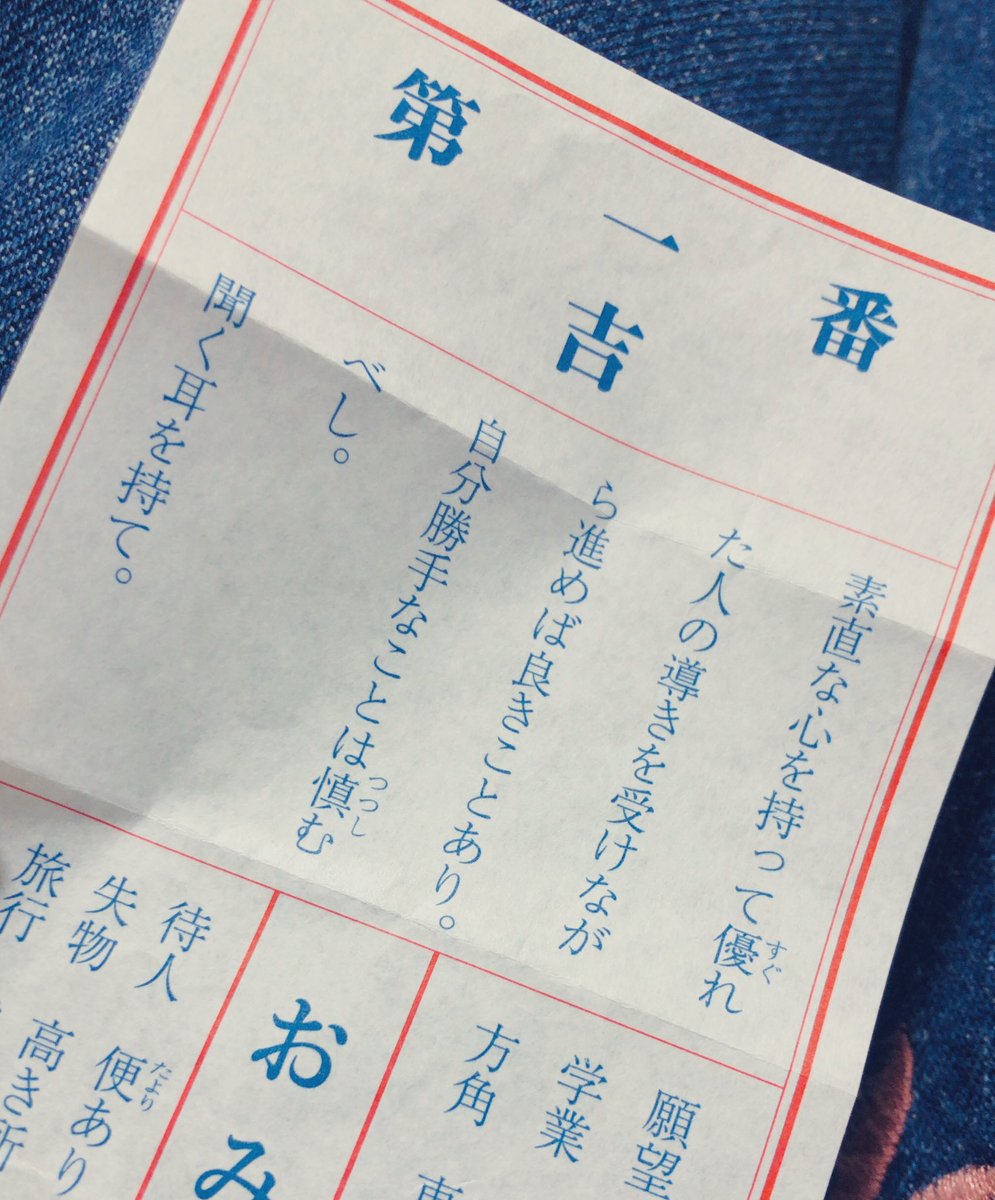 第一番
吉
素直な心を持って優れ
た人の導きを受けなが
ら進めば良きことあり。
自分勝手なことは慎む
べし。
聞く耳を持て。
願望
学業
方角
おみ
待人 便あり
失物 高き所
旅行